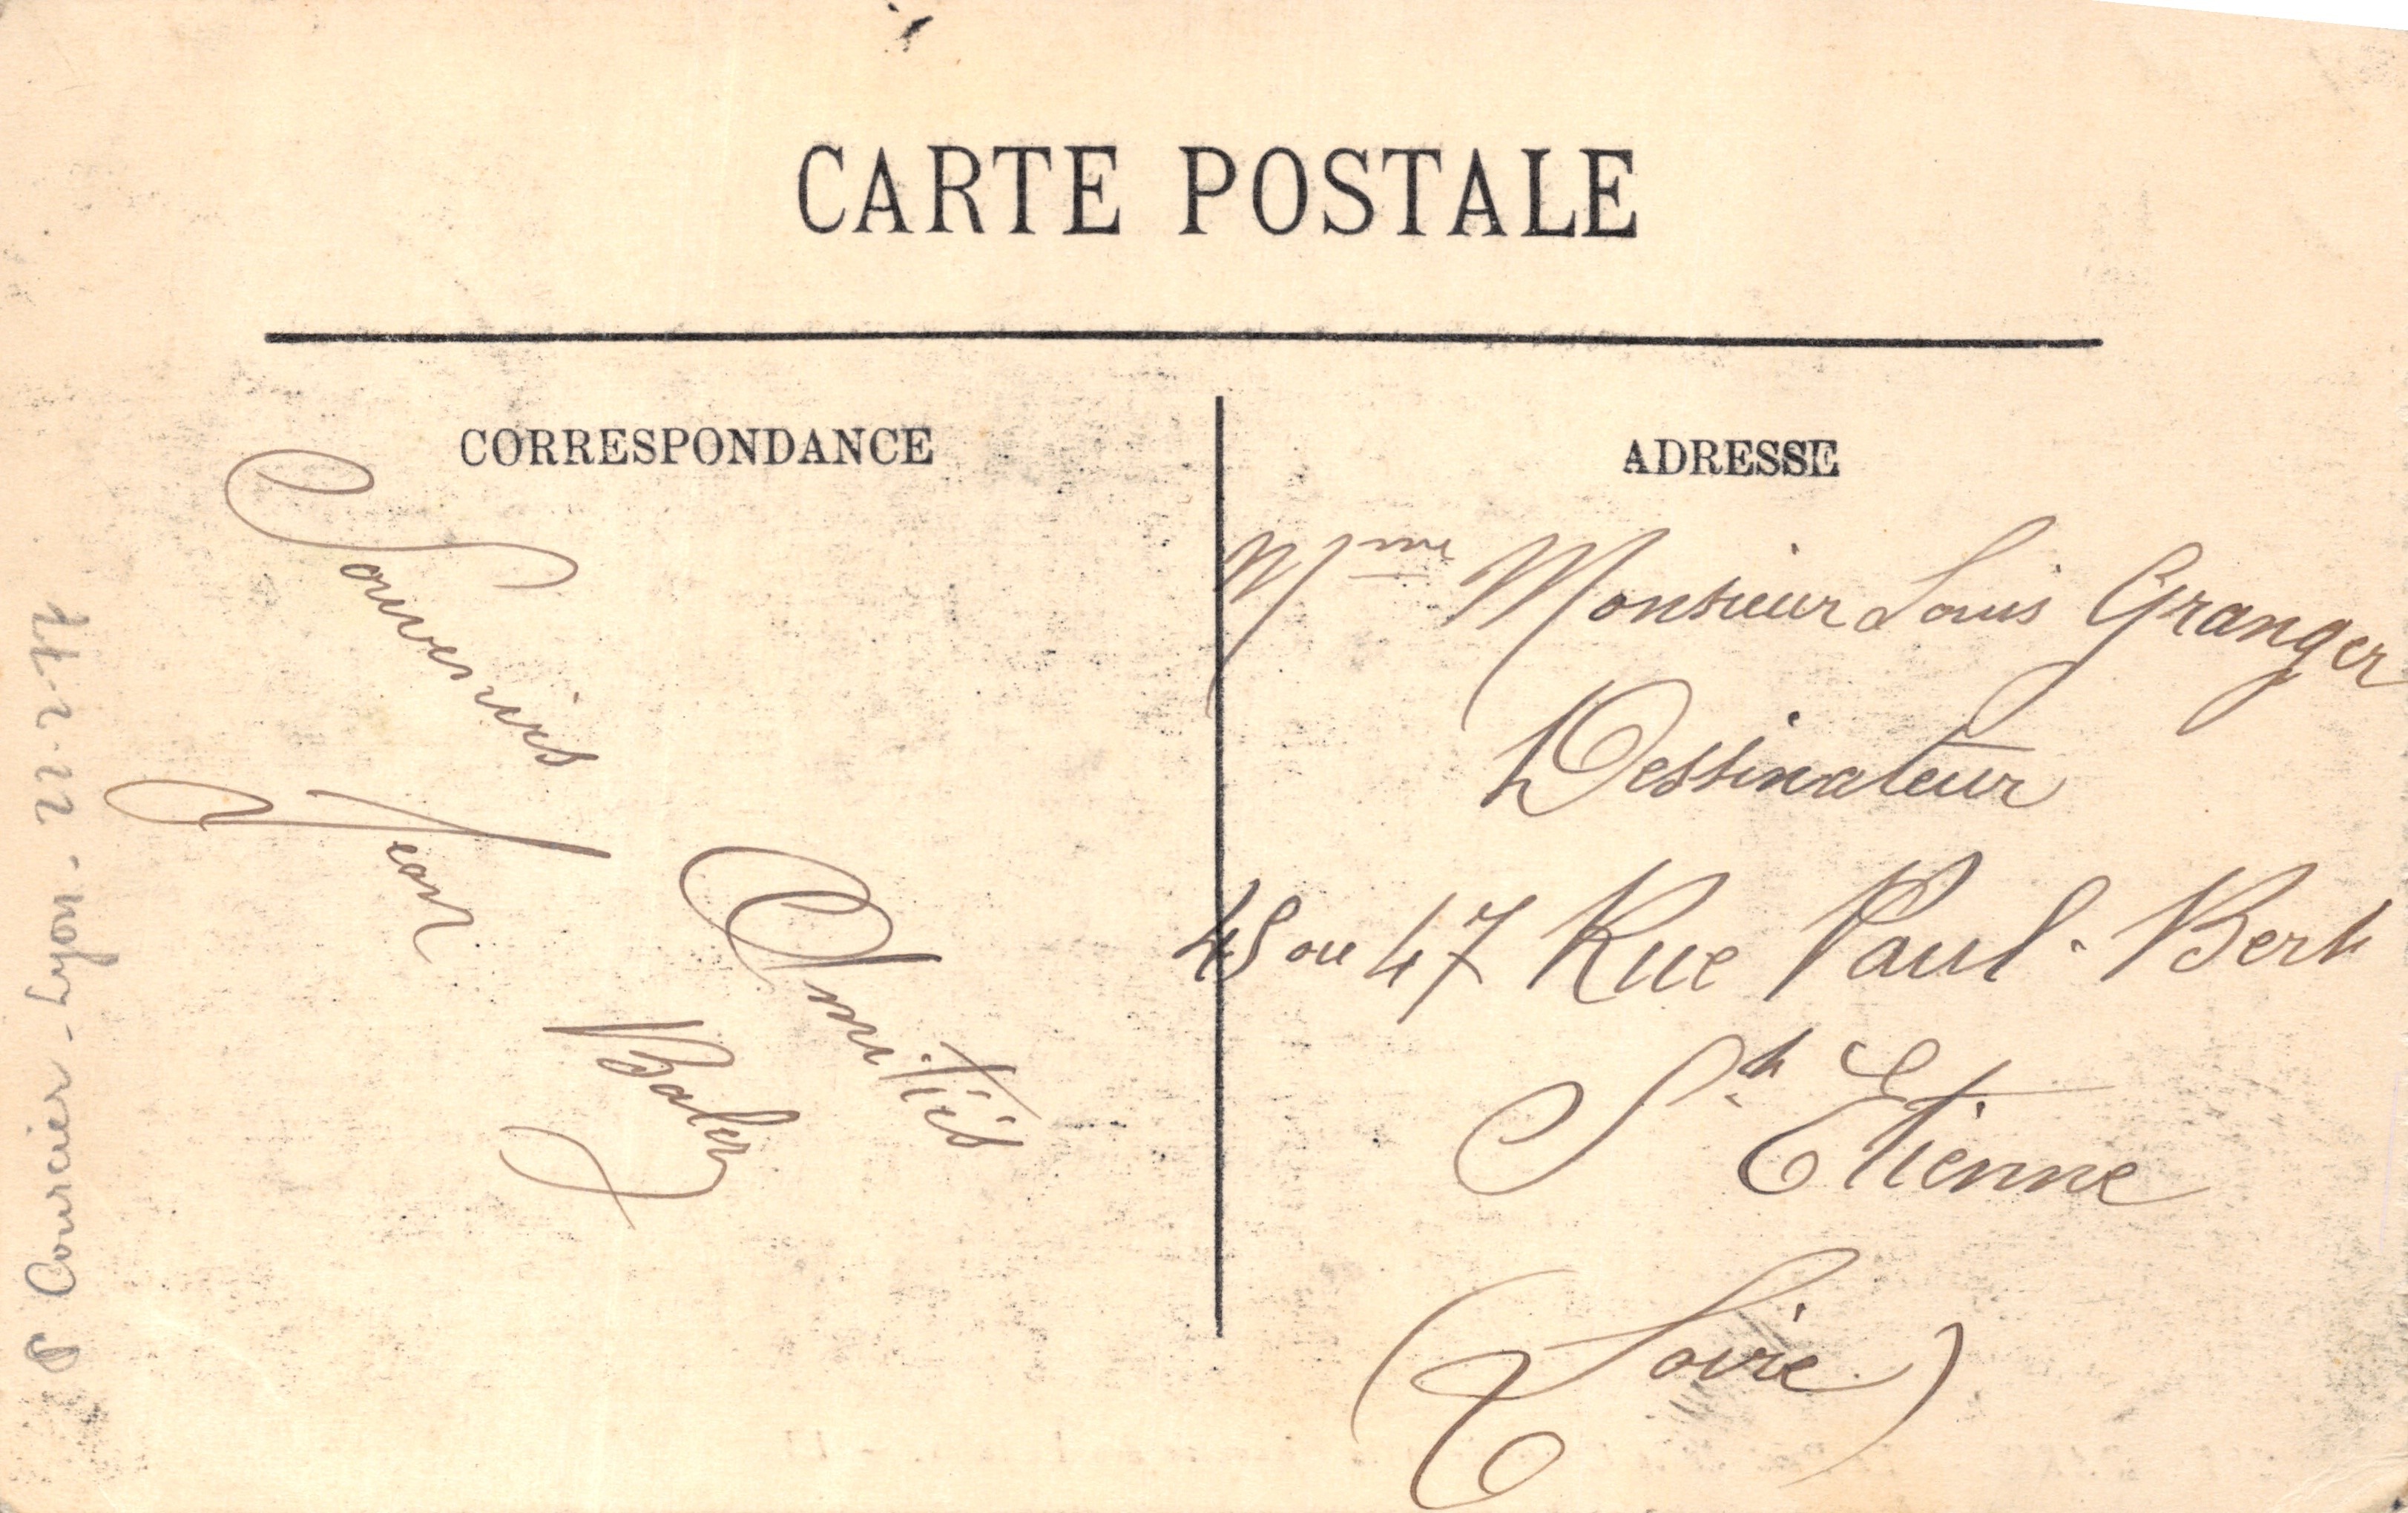 CARTE POSTALE
CORRESPONDANCE
Souvenirs
Amitiés
Jean
ADRESSE
Mme Monsieur Louis Granger
Dessinateur
45 ou 47 Rue Paul-Bert
St. Etienne
(Loire)
P Courcier - Lyon - 22-2-77